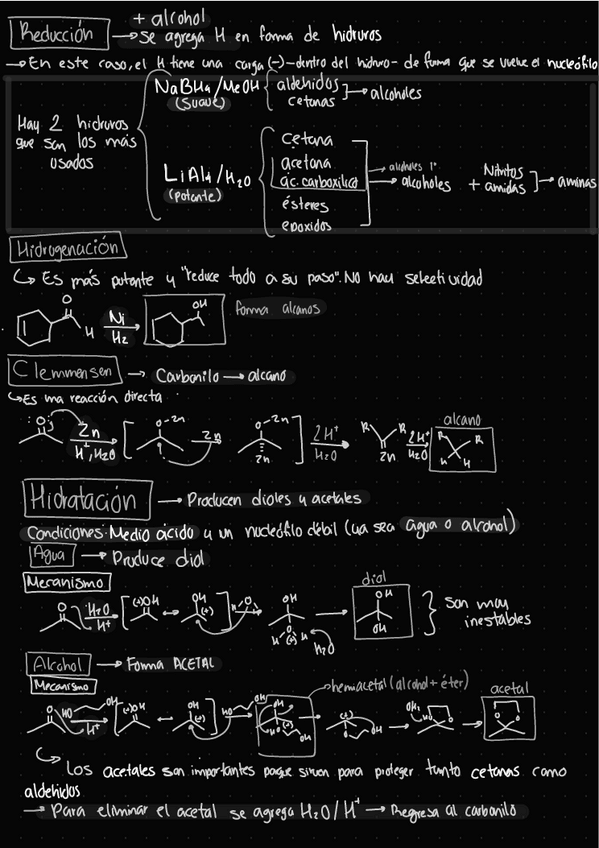 + alcohol
Reducción → Se agrega H en forma de hidruros
→ En este caso, el H tiene una carga (-) - dentro del hidruro - de forma que se vuelve el nucleófilo
Hay 2 hidruros que son los más usados
NaBH4/MeOH (Suave)
aldehidos
cetonas
→ alcoholes
LiAlH4/H2O (potente)
cetona
acetona
ác. carboxílico
ésteres
epoxidos
→ alcoholes 1°
→ alcoholes
+ Nitrilos
amidas
→ aminas
Hidrogenación
↳ Es más potente y "reduce todo a su paso". No hay selectividad
O
H
Ni
H2
OH
forma alcanos
Clemmensen → Carbonilo → alcano
↳ Es una reacción directa
O
Zn
H+, H2O
O-Zn
Zn
O-Zn
Zn
2H+
H2O
R
R
Zn
2H+
H2O
alcano
R
R
H
H
Hidratación → Producen dioles y acetales
Condiciones: Medio ácido y un nucleófilo débil (ya sea agua o alcohol)
Agua → Produce diol
Mecanismo
O
H2O
H+
(+)OH
OH
(+)
H
O
H
OH
H
O
(+)
H
H2O
diol
OH
OH
Son muy inestables
Alcohol → Forma ACETAL
Mecanismo
hemiacetal (alcohol + éter)
acetal
O
HO
OH
H+
(+)OH
OH
(+)
HO
OH
OH
(+)
OH
(+)
O
OH
OH
HO
O
O
O
↳ Los acetales son importantes porque sirven para proteger tanto cetonas como
aldehidos
→ Para eliminar el acetal se agrega H2O/H+ → Regresa al carbonilo